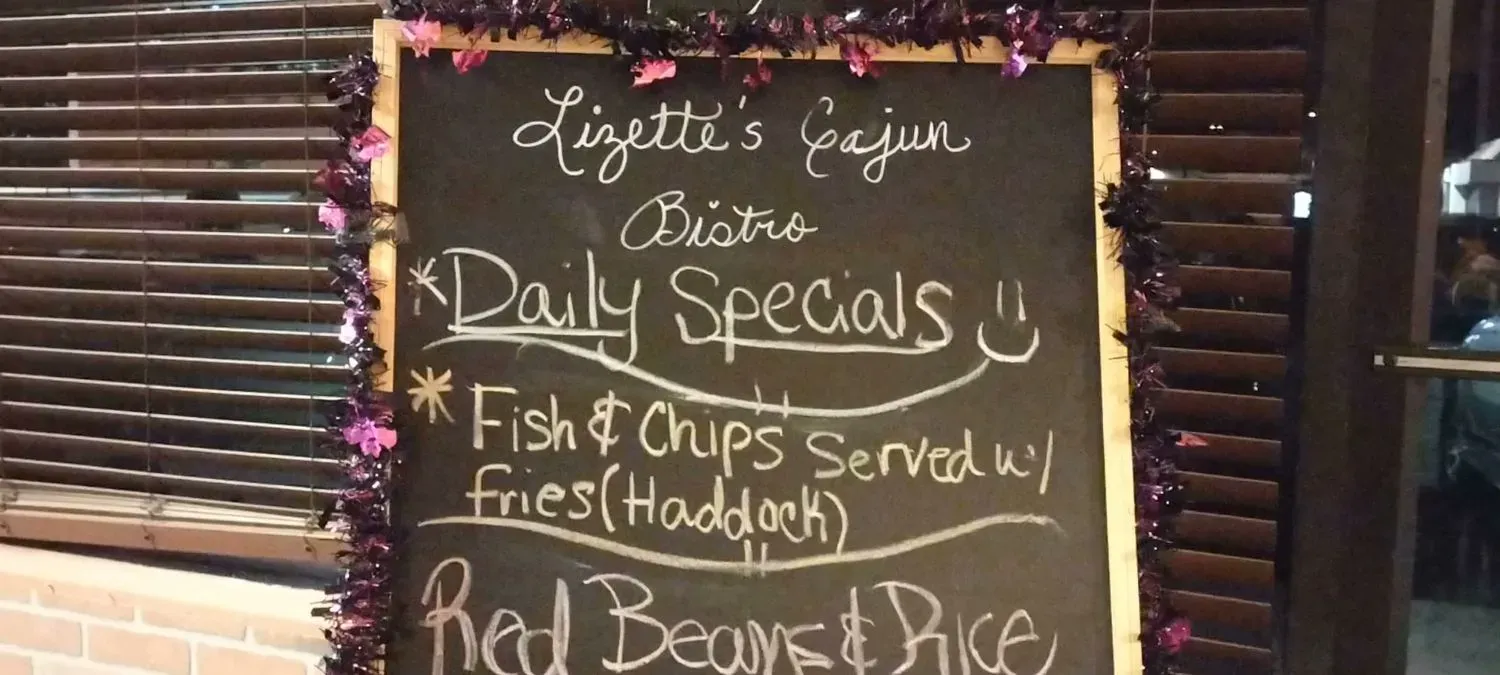 Lizette's Cajun
Bistro
*Daily Specials
* Fish & Chips Served w/
fries (Haddock)
Red Beans & Rice